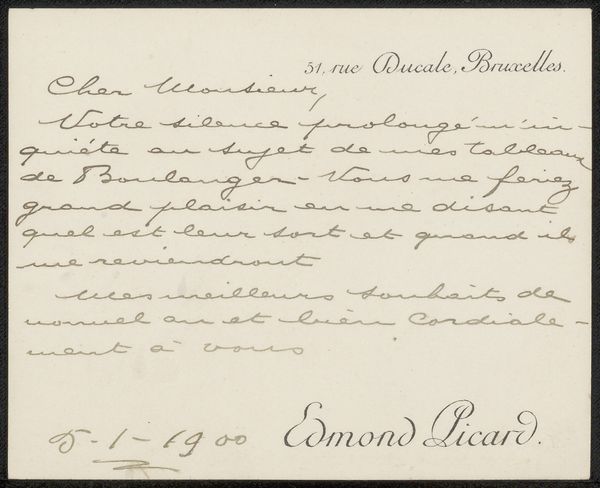 51, rue Ducale, Bruxelles.
Cher Monsieur,
Votre silence prolongé m'in-
quiéte au sujet de mes tableaux
de Boulanger - Vous me feriez
grand plaisir en me disant
quel est leur sort et quand ils
me reviendront
Mes meilleurs souhaits de
nouvel an et bien cordiale-
ment à vous
5-1-1900
Edmond Picard.